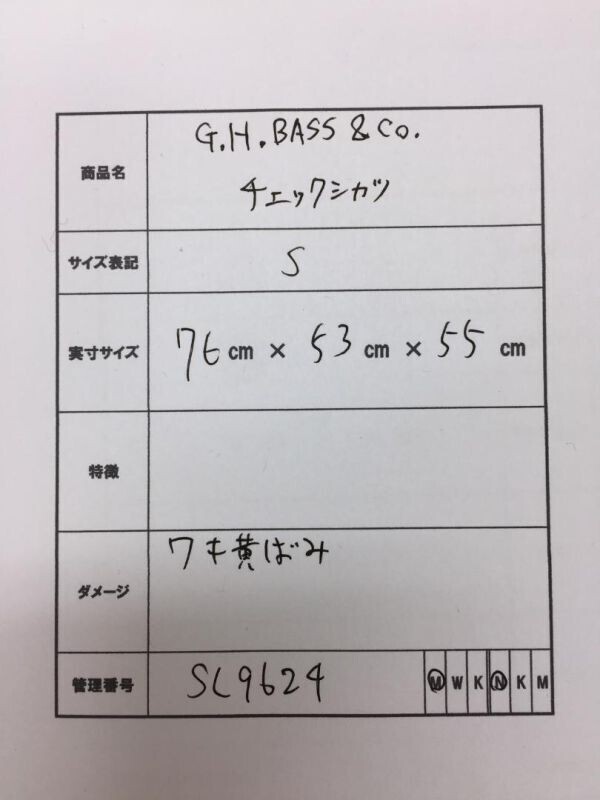 商品名 G.H.BASS & Co.
チェックシャツ
サイズ表記 S
実寸サイズ 76 cm × 53 cm × 55 cm
特徴
ダメージ ワキ黄ばみ
管理番号 SL9624 M W K N K M